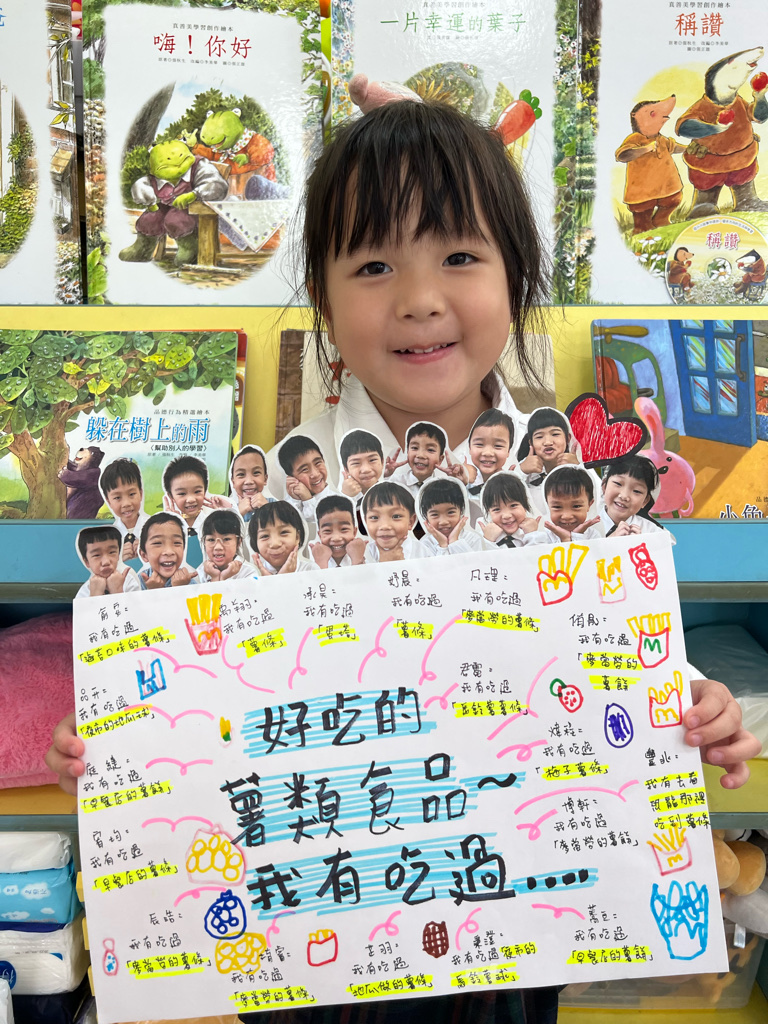 真善美學習創作繪本
嗨！你好
真善美學習創作繪本
一片幸運的葉子
真善美學習創作繪本
稱讚
稱讚
品德行為精選繪本
躲在樹上的雨
《幫助別人的學習》
小魚
好吃的
薯類食品~
我有吃過....
我有吃過
我有吃過
「薯條」
我有吃過
「蛋塔」
妤晨：
我有吃過
「薯條」
我有吃過
「麥當勞的薯條」
我有吃過
「麥當勞的
薯餅」
品卉：
我有吃過
「夜市的地瓜球」
君霈：
我有吃過
「馬鈴薯薯條」
我有吃過
「早餐店的薯餅」
我有吃過
「梅子薯條」
我有去
那裡
吃到薯條
宥均：
我有吃過
「早餐店的薯條」
博軒：
我有吃過
「麥當勞的薯餅」
辰皓：
我有吃過
「麥當勞的薯條」
我有吃過
「麥當勞的薯條」
芷羽：
我有吃過
「地瓜做的薯條」
我有吃過夜市的
我有吃過
「早餐店的薯餅」